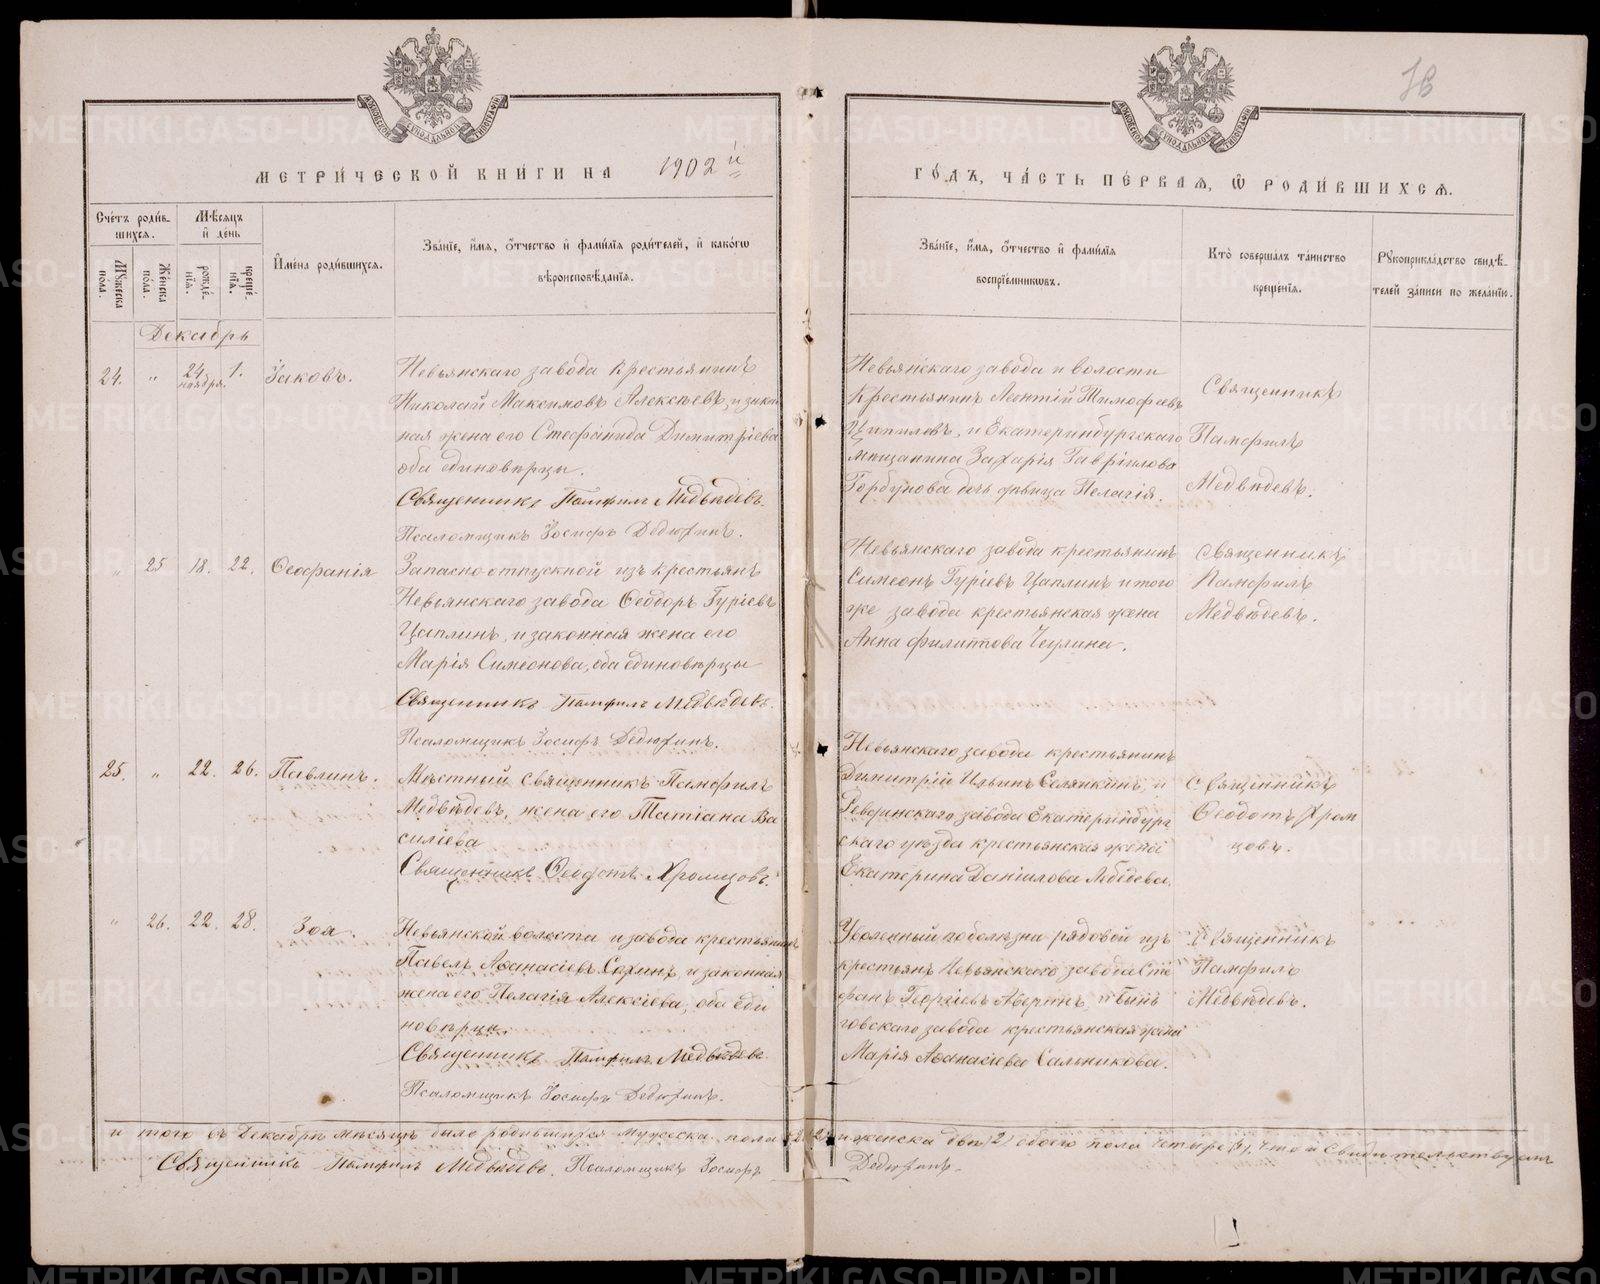 МЕТРИ́ЧЕСКОЙ КНИ́ГИ НА 1902 й
ГО́ДЪ, ЧА́СТЬ ПЕ́РВАЯ, Ѿ РОДИ́ВШИХСЯ.
Сче́тъ роди́вшихся.
Мѣ́сяцъ и҆ де́нь
Му́жеска пола.
Же́нска пола.
рожде́нїя.
креще́нїя.
И҆мена̀ роди́вшихся.
Зва́нїе, и҆́мя, ѻ҆́тчество и҆ фами́лїя роди́телей, и҆ како́гѡ вѣроисповѣ́данїя.
Зва́нїе, и҆́мя, ѻ҆́тчество и҆ фами́лїя воспрїе́мниковъ.
Кто̀ соверша́лъ та́инство креще́нїя.
Рꙋкоприкла́дство свидѣ́телей за́писи по жела́нїю.
Декабрь
24. " 24 ноября. 1. Іаковъ.
Невьянскаго завода крестьянинъ
Николай Максимовъ Алексѣевъ, и закон
ная жена его Стефанида Димитріева
оба единовѣрцы.
Священникъ Памфилъ Медвѣдевъ.
Псаломщикъ Іосифъ Дедюхинъ.
Невьянскаго завода и волости
крестьянинъ Леонтій Тимофеевъ
Ципилевъ, и Екатеринбургскаго
мѣщанина Захарія Гавріилова
Горбунова дочь дѣвица Пелагія.
Священникъ
Памфилъ
Медвѣдевъ.
" 25 18. 22. Ѳеофанія
Запасно отпускной изъ крестьянъ
Невьянскаго завода Ѳеодоръ Гуріевъ
Цаплинъ, и законная жена его
Марія Симеонова, оба единовѣрцы
Священникъ Памфилъ Медвѣдевъ.
Псаломщикъ Іосифъ Дедюхинъ.
Невьянскаго завода крестьянинъ
Симеонъ Гуріевъ Цаплинъ и того
же завода крестьянская жена
Анна Филиппова
Священникъ
Памфилъ
Медвѣдевъ.
25. " 22. 26. Павлинъ.
Мѣстный священникъ Памфилъ
Медвѣдевъ, жена его Татіана Ва
силіева
Священникъ Ѳеодотъ Хромцовъ.
Невьянскаго завода крестьянинъ
Димитрій Ильинъ Селянкинъ, и
завода Екатеринбург
скаго уѣзда крестьянская жена
Екатерина Даніилова Лебедева.
Священникъ
Ѳеодотъ Хром
цовъ.
" 26. 22. 28. Зоя.
Невьянской волости и завода крестьянинъ
Павелъ Аѳанасіевъ и законная
жена его Пелагія Алексіева, оба еди
новѣрцы.
Священникъ Памфилъ Медвѣдевъ
Псаломщикъ Іосифъ Дедюхинъ.
Уволенный по болѣзни рядовой изъ
крестьянъ Невьянскаго завода Сте
фанъ Георгіевъ Аверинъ, и Бынь
говскаго завода крестьянская жена
Марія Аѳанасіева Сальникова.
Священникъ
Памфилъ
Медвѣдевъ.
и того въ Декабрѣ мѣсяцѣ было родившихся мужеска пола 2 (2) и женска двѣ (2) обоего пола четыре (4), что и свидѣтельствуемъ
Священникъ Памфилъ Медвѣдевъ. Псаломщикъ Іосифъ Дедюхинъ.
METRIKI.GASO-URAL.RU